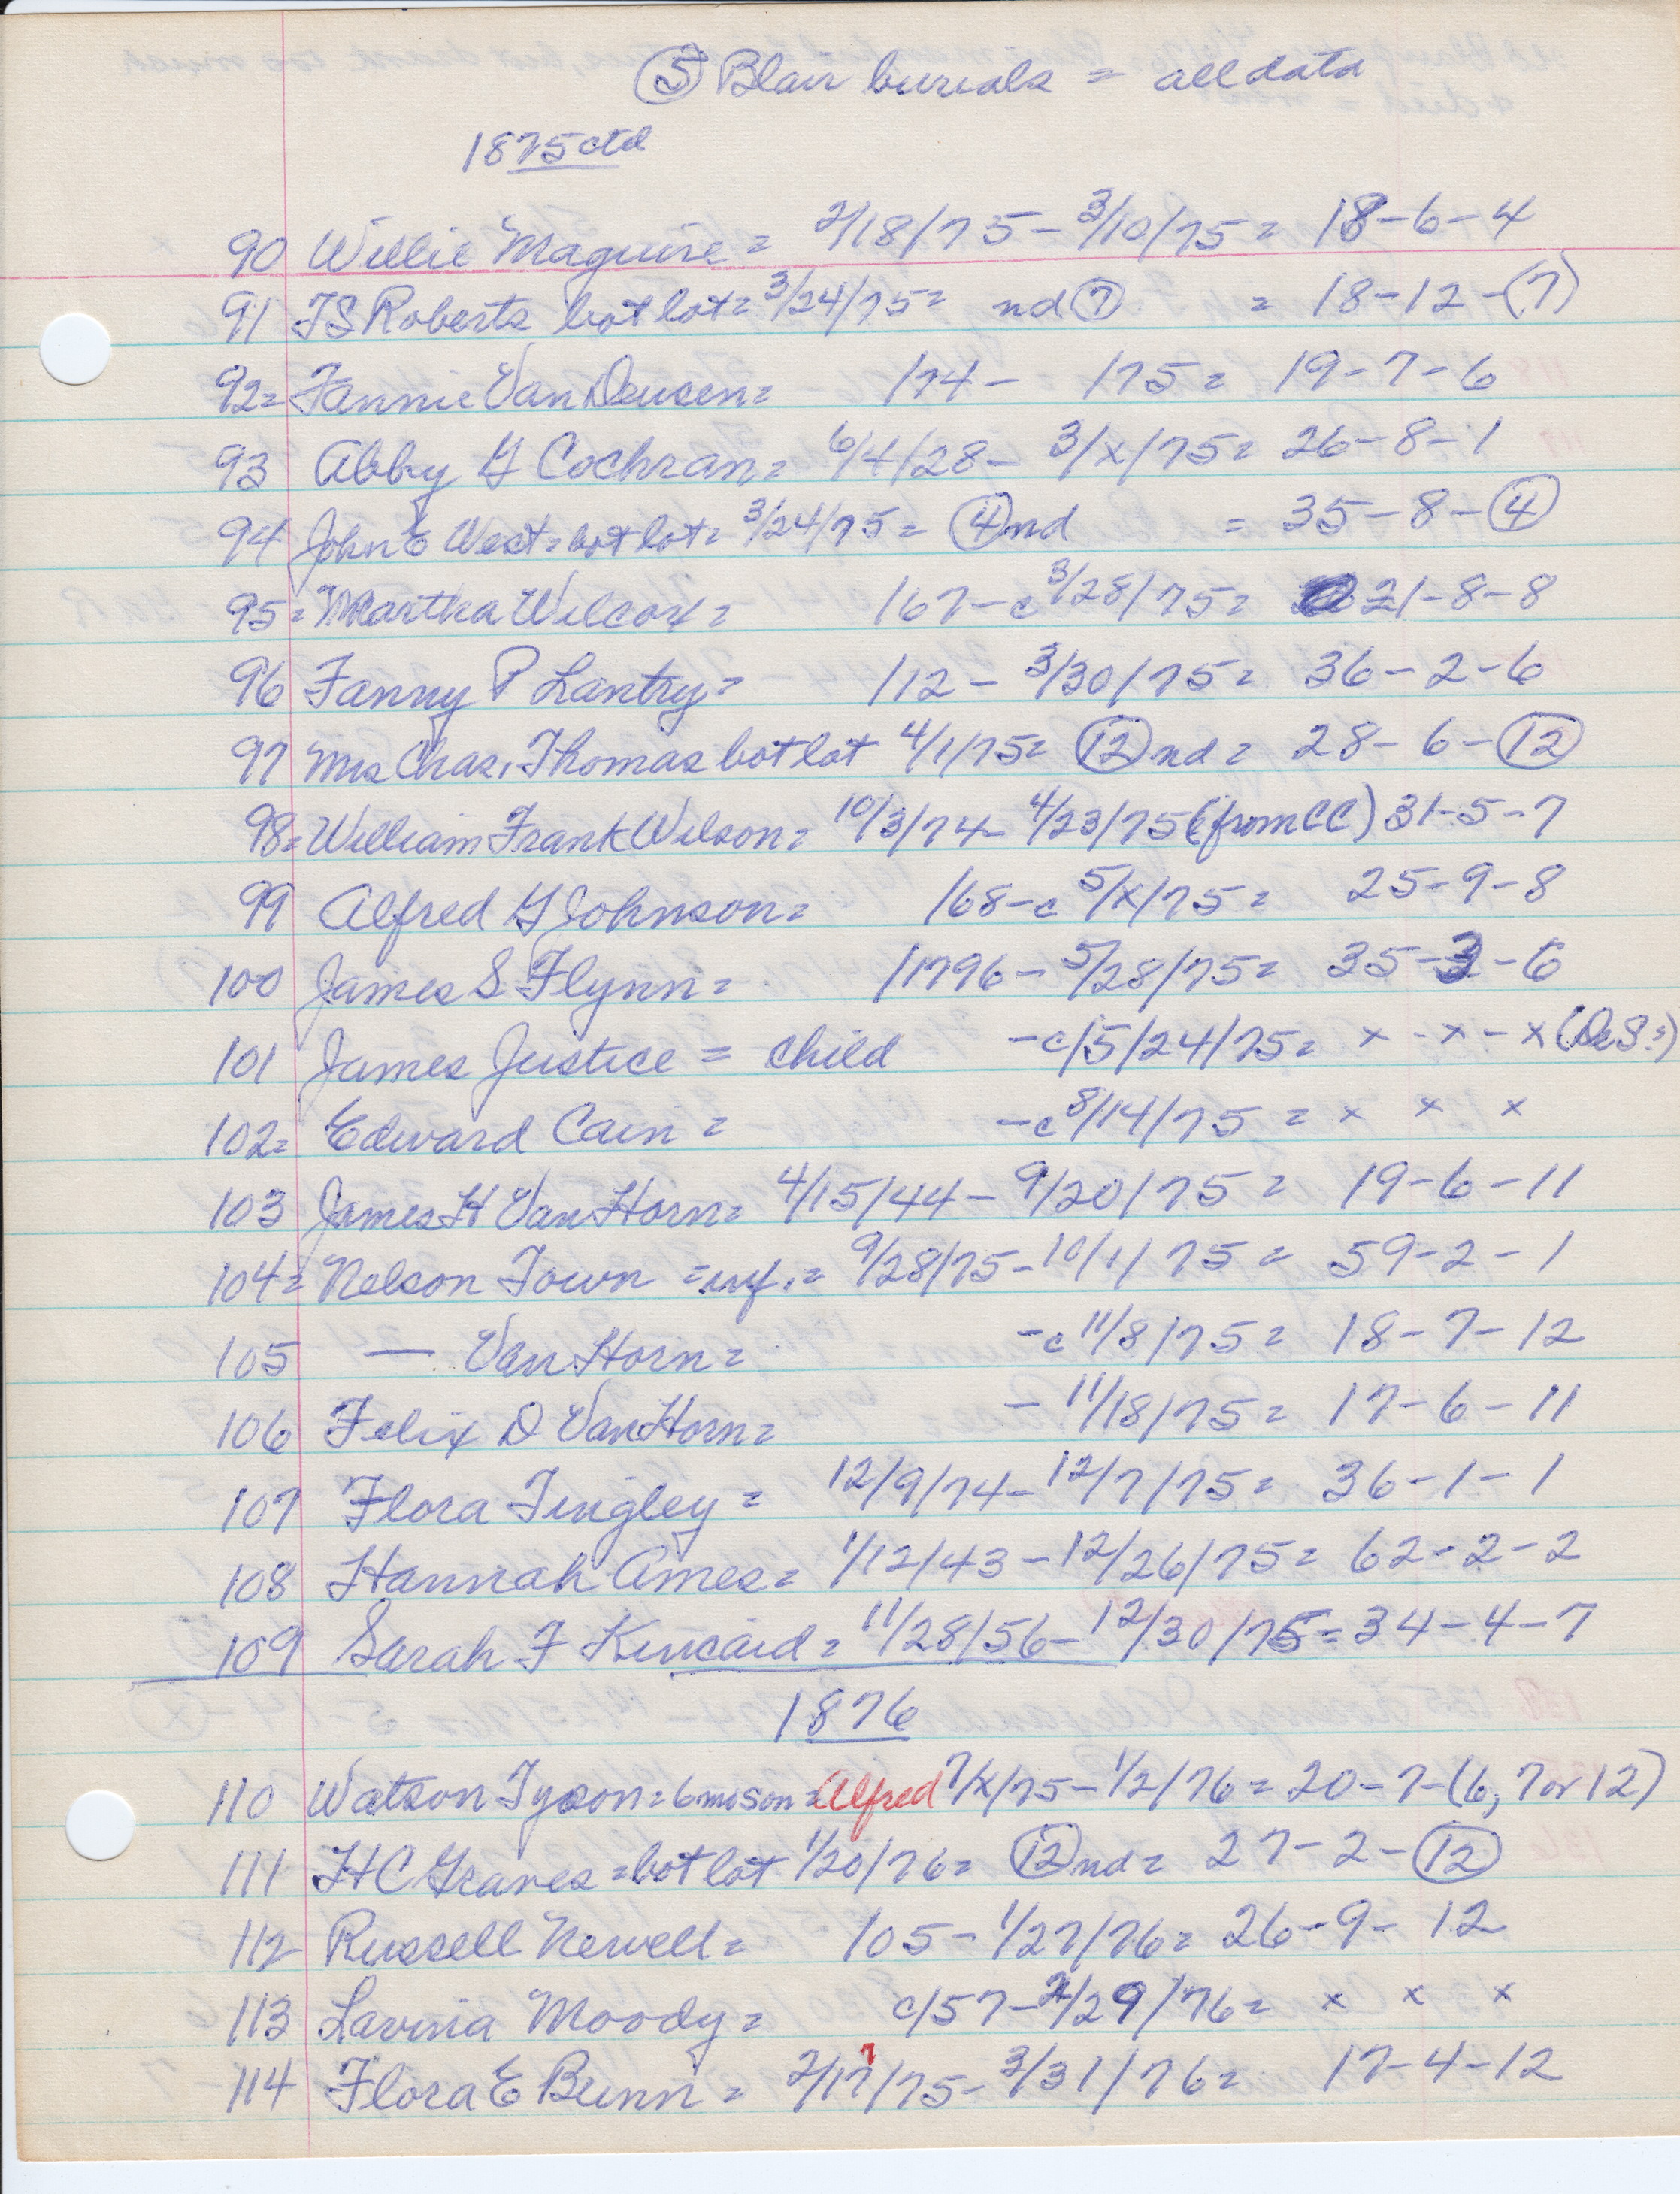 ⑤ Blair burials = all data
1875 ctd
90 Willie Maguire = 2/18/75 - 3/10/75 = 18-6-4
91 TS Roberts bot lot = 3/24/75 = nd ⑦ = 18-12-(7)
92 = Fannie Van Deusen = /74 - /75 = 19-7-6
93 Abby G Cochran = 6/4/28 - 3/x/75 = 26-8-1
94 John E West = bot lot = 3/24/75 = ④ nd = 35-8-④
95 = Martha Wilcox = /67 - c 3/28/75 = 21-8-8
96 Fanny P Lantry = /12 - 3/30/75 = 36-2-6
97 Mrs Chas. Thomas bot lot 4/1/75 = ⑫ nd = 28-6-⑫
98 = William Frank Wilson = 10/3/74 - 4/23/75 (from CC) 31-5-7
99 Alfred G Johnson = /68 - c 5/x/75 = 25-9-8
100 James S Flynn = /1796 - 5/28/75 = 35-3-6
101 James Justice = child - c/5/24/75 = x - x - x (DeS.)
102 = Edward Cain = - c 8/14/75 = x x x
103 James H Van Horn = 4/15/44 - 9/20/75 = 19-6-11
104 = Nelson Town = inf. = 9/28/75 - 10/1/75 = 59-2-1
105 — Van Horn = - c 11/8/75 = 18-7-12
106 Felix D Van Horn = - 11/18/75 = 17-6-11
107 Flora Tingley = 12/9/74 - 12/7/75 = 36-1-1
108 Hannah Ames = 1/12/43 - 12/26/75 = 62-2-2
109 Sarah F Kincaid = 11/28/56 - 12/30/75 = 34-4-7
1876
110 Watson Tyson = 6 mo son = Alfred 7/x/75 - 1/2/76 = 20-7-(6, 7 or 12)
111 HC Graves = bot lot 1/20/76 = ⑫ nd = 27-2-⑫
112 Russell Newell = /05 - 1/27/76 = 26-9-12
113 Lavinia Moody = c/57 - 2/29/76 = x x x
114 Flora E Bunn = 2/17/75 - 3/31/76 = 17-4-12